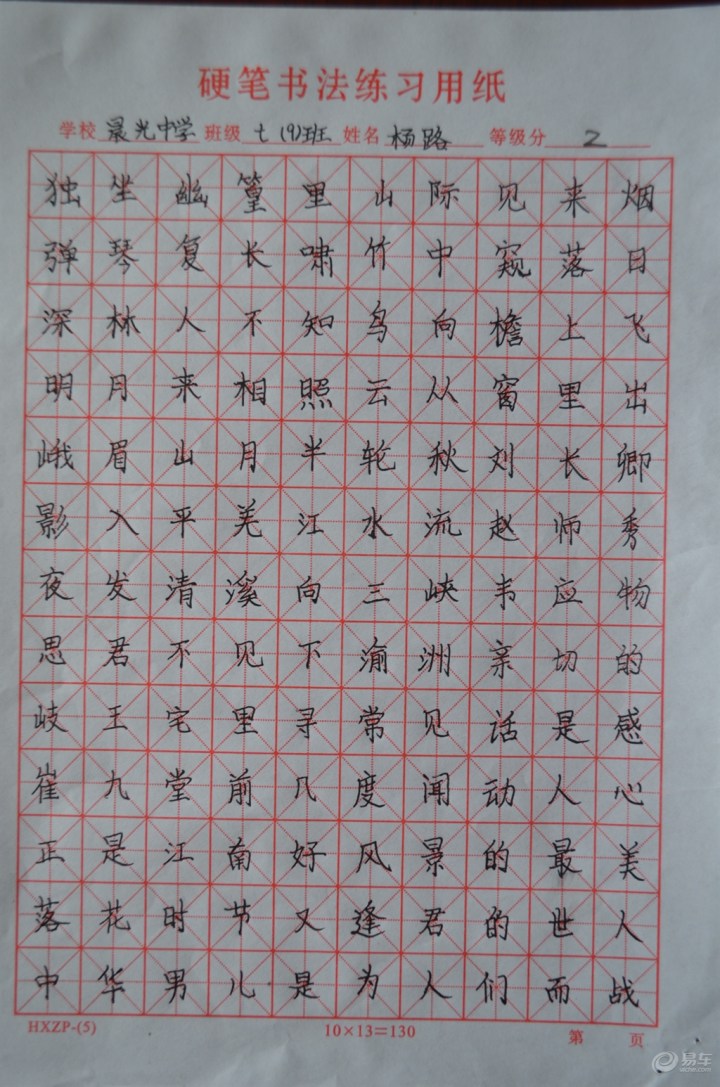 硬笔书法练习用纸
学校 晨光中学 班级 七(9)班 姓名 杨路 等级分 2
独坐幽篁里山际见来烟
弹琴复长啸竹中窥落日
深林人不知鸟向檐上飞
明月来相照云从窗里出
峨眉山月半轮秋刘长卿
影入平羌江水流赵师秀
夜发清溪向三峡韦应物
思君不见下渝洲亲切的
岐王宅里寻常见话是感
崔九堂前几度闻动人心
正是江南好风景的最美
落花时节又逢君的世人
中华男儿是为人们而战
HXZP-(5) 10×13=130 第 页
易车